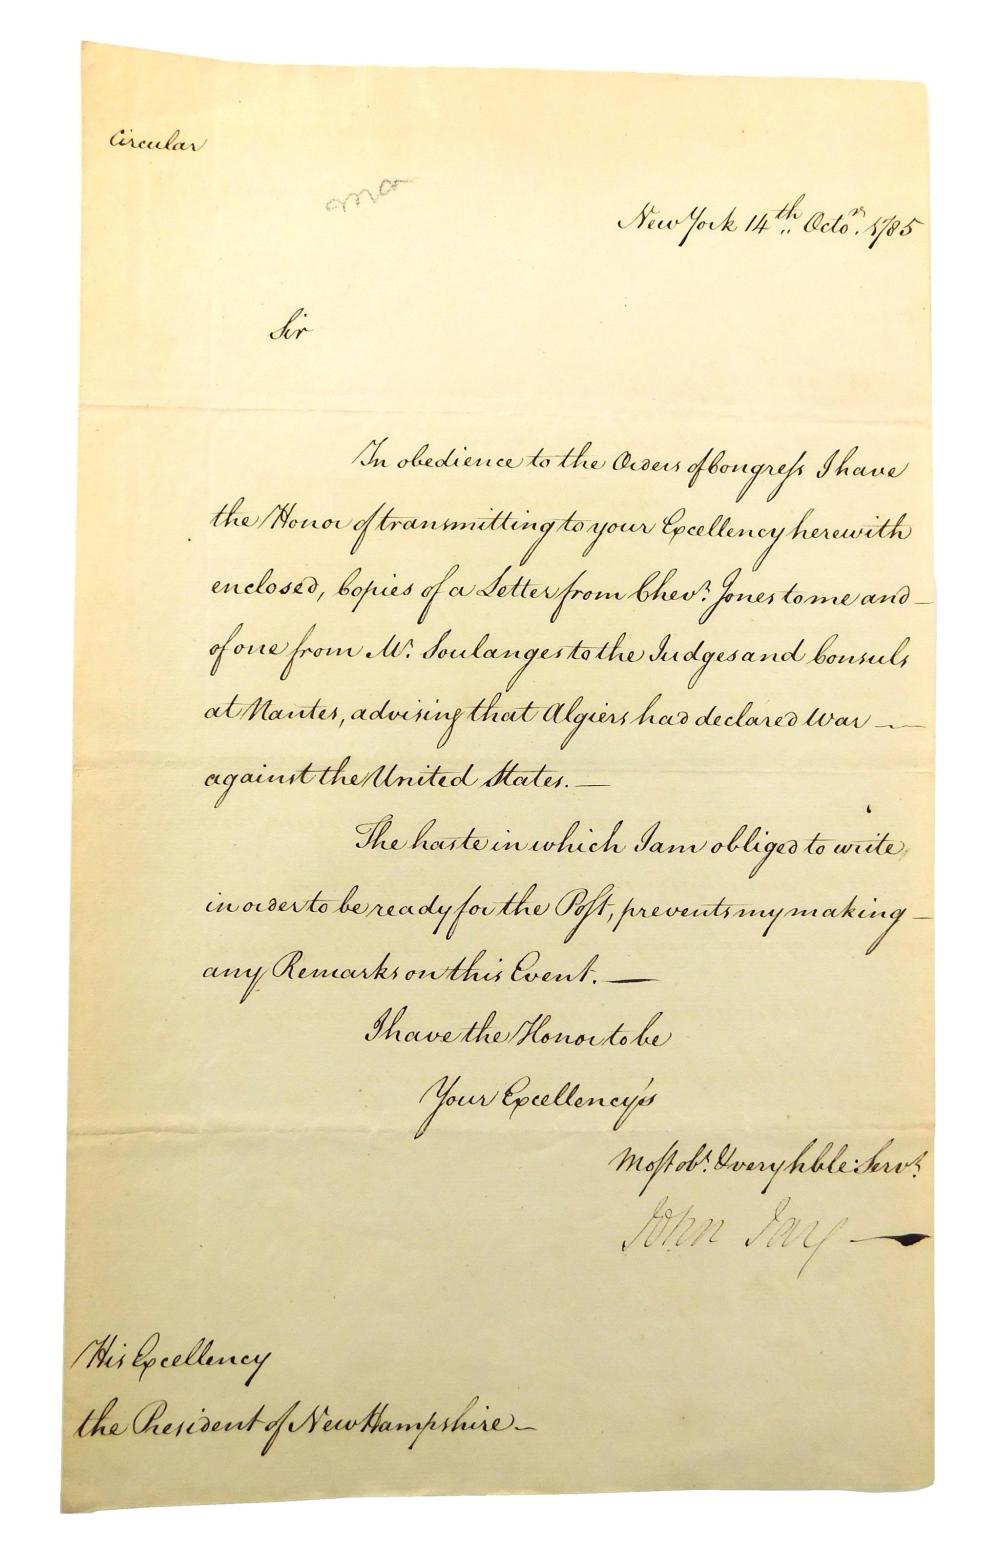 Circular
New York 14th. Octor. 1785
Sir
In obedience to the Orders of Congress I have
the Honor of transmitting to your Excellency herewith
enclosed, Copies of a Letter from Chevr. Jones to me and —
of one from Mr. Soulanges to the Judges and Consuls
at Nantes, advising that Algiers had declared War —
against the United States. —
The haste in which I am obliged to write
in order to be ready for the Post, prevents my making —
any Remarks on this Event. —
I have the Honor to be
Your Excellency's
Most obt. & very hble: Servt.
John Jay —
His Excellency
the President of New Hampshire —